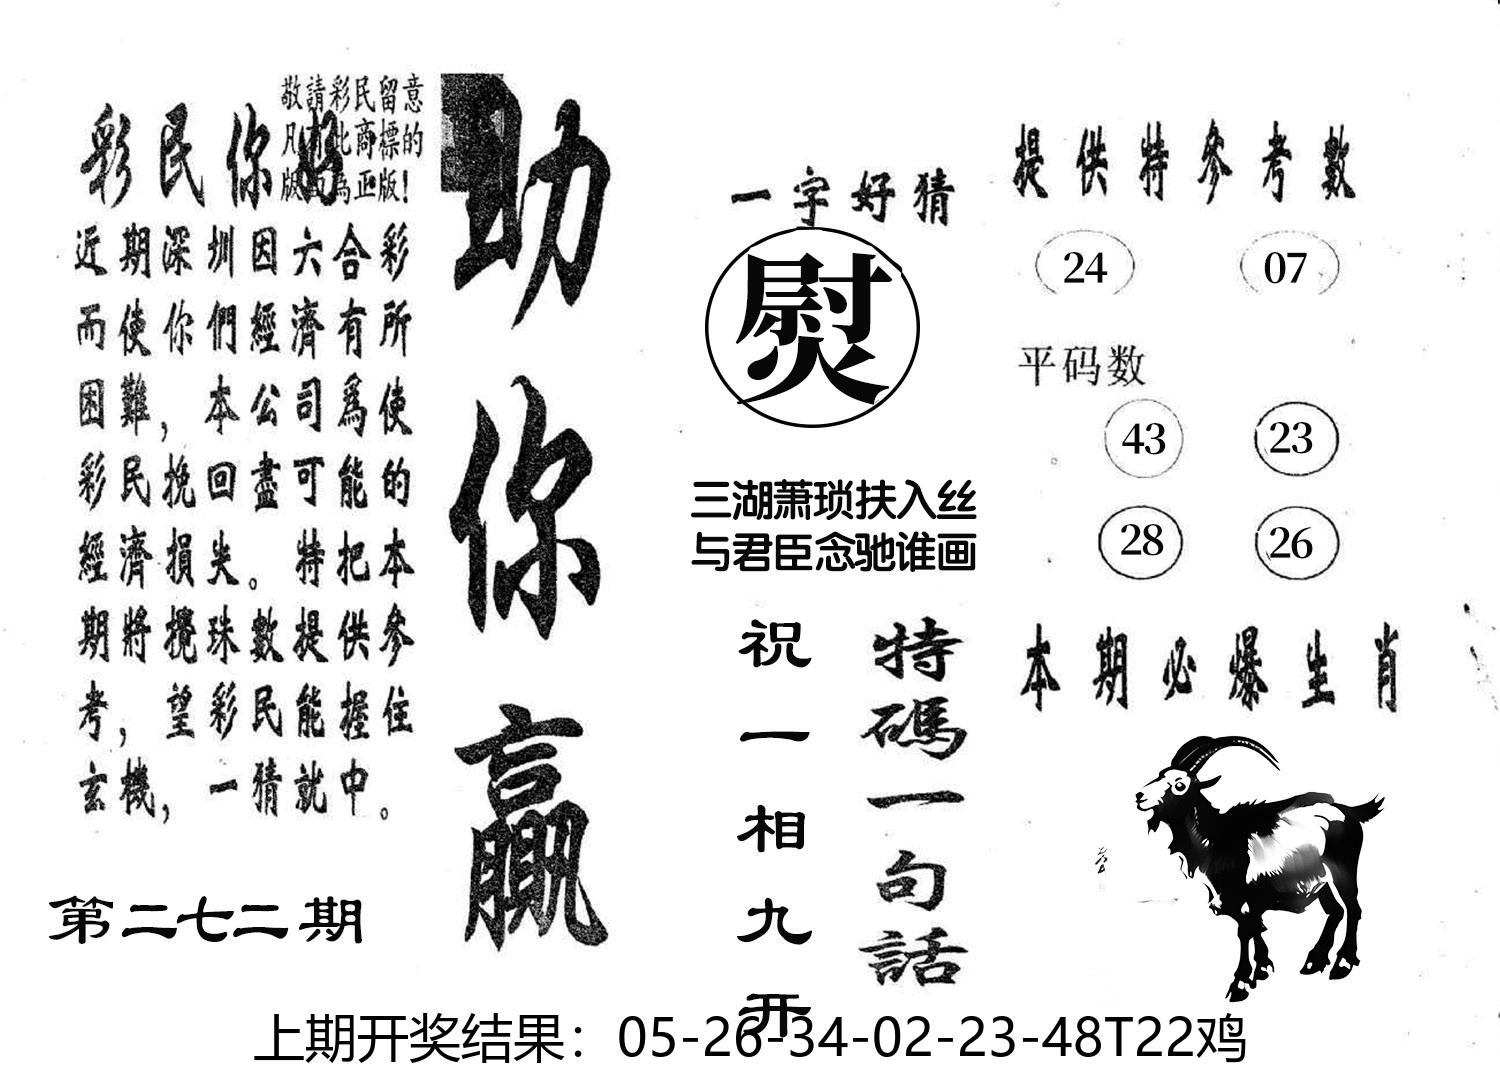 敬請彩民留意
凡有此商標的
版面為正版！
彩民你好
近期深圳因六合彩
而使你們經濟有所
困難，本公司爲使
彩民挽回盡可能的
經濟損失。特把本
期將攪珠數提供參
考，望彩民能握住
玄機，一猜就中。
第二七二期
助你贏
一字好猜
熨
三湖萧琐扶入丝
与君臣念驰谁画
特碼一句話
祝一相九开
提供特參考數
24 07
平码数
43 23
28 26
本期必爆生肖
上期开奖结果：05-26-34-02-23-48T22鸡